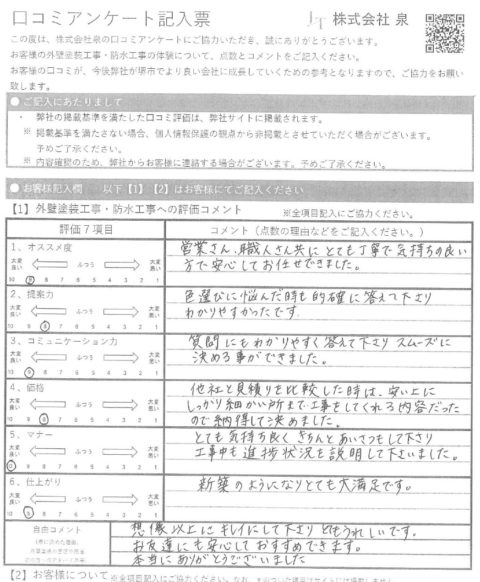 口コミアンケート記入票
株式会社 泉
この度は、株式会社泉の口コミアンケートにご協力いただき、誠にありがとうございます。
お客様の外壁塗装工事・防水工事の体験について、点数とコメントをご記入ください。
お客様の口コミが、今後弊社が堺市でより良い会社に成長していくための参考となりますので、ご協力をお願い
致します。
● ご記入にあたりまして
・ 弊社の掲載基準を満たした口コミ評価は、弊社サイトに掲載されます。
※ 掲載基準を満たさない場合、個人情報保護の観点から非掲載とさせていただく場合がございます。
予めご了承ください。
※ 内容確認のため、弊社からお客様に連絡する場合がございます。予めご了承ください。
● お客様記入欄 以下【1】【2】はお客様にてご記入ください
【1】外壁塗装工事・防水工事への評価コメント ※全項目記入にご協力ください。
評価７項目 コメント（点数の理由などをご記入ください。）
1、オススメ度
大変良い ふつう 大変悪い
10 9 8 7 6 5 4 3 2 1
営業さん、職人さん共にとても丁寧で気持ちの良い
方で安心してお任せできました。
2、提案力
大変良い ふつう 大変悪い
10 9 8 7 6 5 4 3 2 1
色選びに悩んだ時も的確に答えて下さり
わかりやすかったです
3、コミュニケーション力
大変良い ふつう 大変悪い
10 9 8 7 6 5 4 3 2 1
質問にもわかりやすく答えて下さりスムーズに
決める事ができました。
4、価格
大変良い ふつう 大変悪い
10 9 8 7 6 5 4 3 2 1
他社と見積りを比較した時は、安い上に
しっかり細かい所まで工事をしてくれる内容だった
ので納得して決めました。
5、マナー
大変良い ふつう 大変悪い
10 9 8 7 6 5 4 3 2 1
とても気持ち良く きちんとあいさつもして下さり
工事中も進捗状況を説明して下さいました。
6、仕上がり
大変良い ふつう 大変悪い
10 9 8 7 6 5 4 3 2 1
新築のようになりとても大満足です。
自由コメント
想像以上にキレイにして下さり とてもうれしいです。
お友達にも安心しておすすめできます。
本当にありがとうございました
【2】お客様について ※全項目記入にご協力ください。